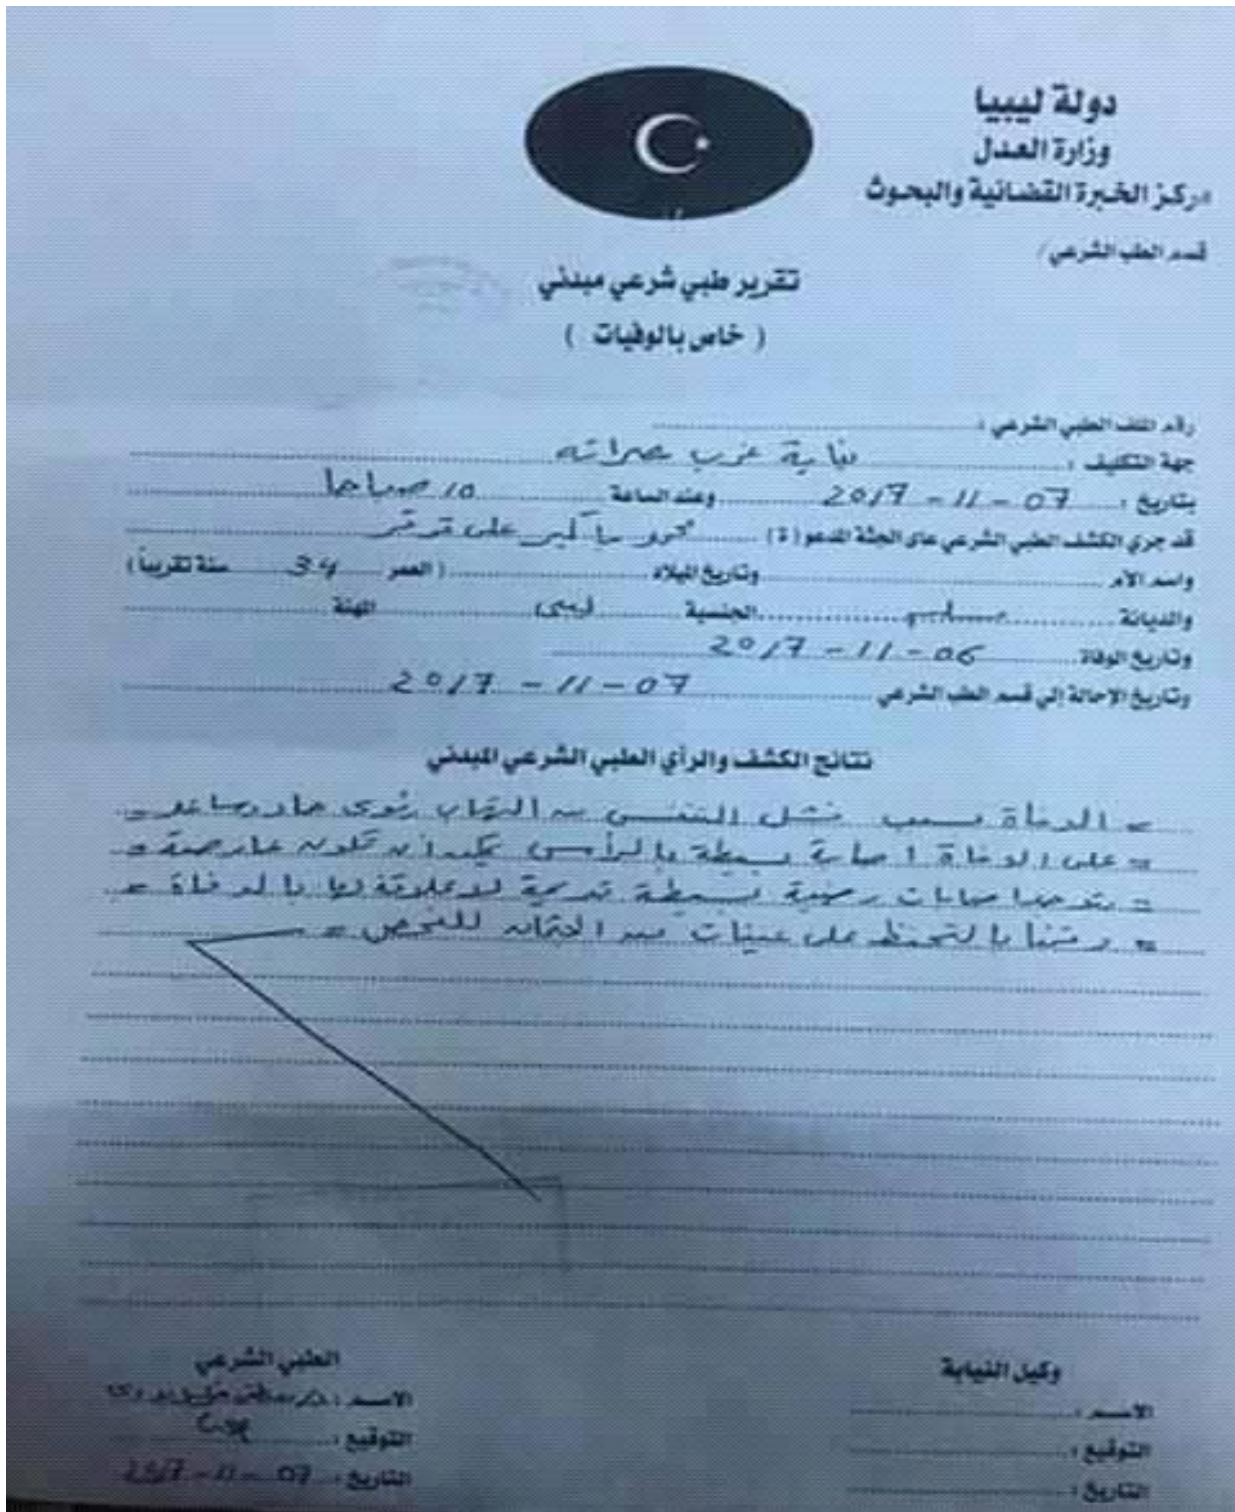 دولة ليبيا
وزارة العدل
مركز الخبرة القضائية والبحوث
قسم الطب الشرعي /
تقرير طبي شرعي مبدئي
( خاص بالوفيات )
رقم الملف الطبي الشرعي :
جهة التكليف : نيابة غرب مصراته
بتاريخ : 07-11-2017 وعند الساعة 10 صباحا
قد جري الكشف الطبي الشرعي على الجثة المدعو (ة) على
واسم الأم وتاريخ الميلاد ( العمر 34 سنة تقريباً )
والديانة مسلم الجنسية ليبي المهنة
وتاريخ الوفاة 06-11-2017
وتاريخ الإحالة إلي قسم الطب الشرعي 07-11-2017
نتائج الكشف والرأي الطبي الشرعي المبدئي
= الوفاة بسبب فشل التنفس من التهاب رئوي حاد وساعد =
= على الوفاة اصابة بسيطة بالرأس يمكن أن تكون عارضة =
= يوجد اصابات رضية بسيطة قديمة لا علاقة لها بالوفاة =
= وقمنا بالتحفظ على عينات من الجثمان للفحص =
وكيل النيابة
الاسم :
التوقيع :
التاريخ :
الطبي الشرعي
الاسم :
التوقيع :
التاريخ : 07-11-2017